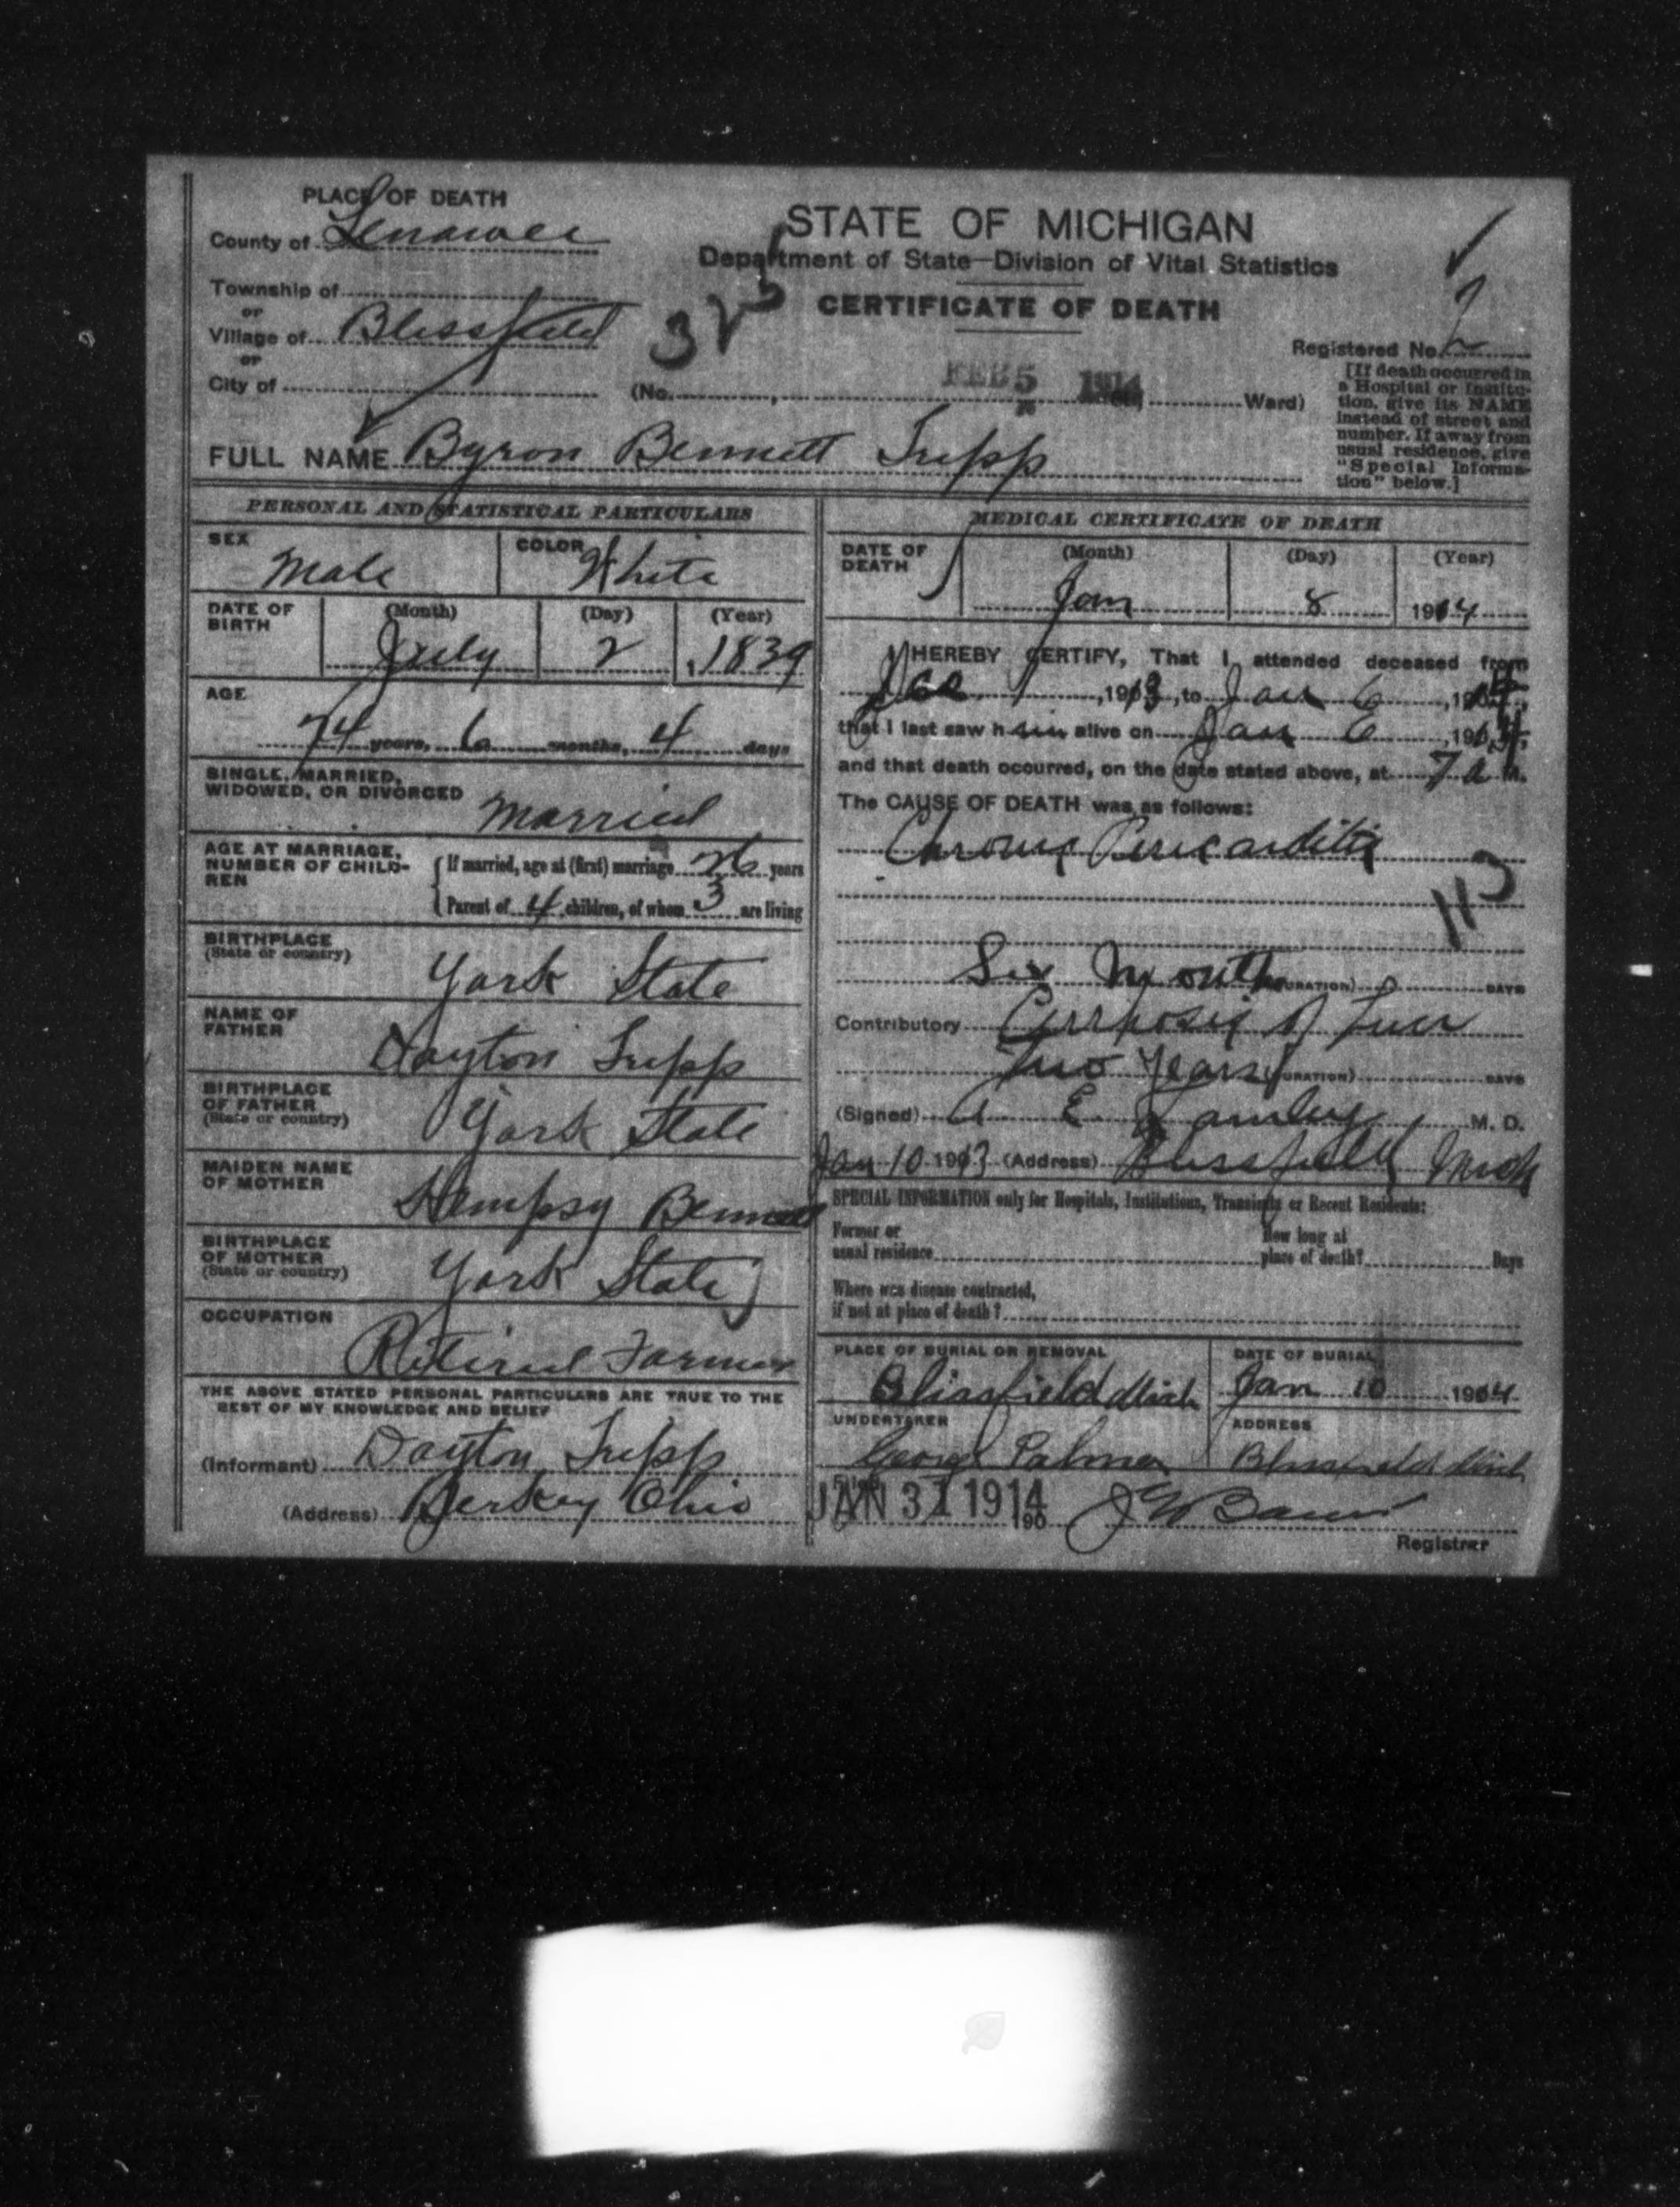 PLACE OF DEATH
County of Lenawee
Township of
or
Village of Blissfield
or
City of
STATE OF MICHIGAN
Department of State—Division of Vital Statistics
CERTIFICATE OF DEATH
325
Registered No. 2
2
(No. , Ward)
FEB 5 1914
[If death occurred in
a Hospital or Institu-
tion, give its NAME
instead of street and
number. If away from
usual residence, give
"Special Informa-
tion" below.]
FULL NAME Byron Bennett Tripp
PERSONAL AND STATISTICAL PARTICULARS
SEX Male
COLOR White
DATE OF
BIRTH
(Month) (Day) (Year)
July 2, 1839
AGE
74 years, 6 months, 4 days
SINGLE, MARRIED,
WIDOWED, OR DIVORCED Married
AGE AT MARRIAGE,
NUMBER OF CHILD-
REN
If married, age at (first) marriage 26 years
Parent of 4 children, of whom 3 are living
BIRTHPLACE
(State or country)
York State
NAME OF
FATHER
Dayton Tripp
BIRTHPLACE
OF FATHER
(State or country)
York State
MAIDEN NAME
OF MOTHER
Hempsy Bennett
BIRTHPLACE
OF MOTHER
(State or country)
York State
OCCUPATION
Retired Farmer
THE ABOVE STATED PERSONAL PARTICULARS ARE TRUE TO THE
BEST OF MY KNOWLEDGE AND BELIEF
(Informant) Dayton Tripp
(Address) Berkey Ohio
MEDICAL CERTIFICATE OF DEATH
DATE OF
DEATH
(Month) (Day) (Year)
Jan 8 1914
I HEREBY CERTIFY, That I attended deceased from
Dec 1, 1913, to Jan 6, 1914,
that I last saw him alive on Jan 6, 1914,
and that death occurred, on the date stated above, at 7 a M.
The CAUSE OF DEATH was as follows:
Chronic Pericarditis
113
Six Months (DURATION) DAYS
Contributory Cirrhosis of Liver
Two Years (DURATION) DAYS
(Signed) A E M. D.
Jan 10 1913 (Address) Blissfield Mich
SPECIAL INFORMATION only for Hospitals, Institutions, Transients or Recent Residents:
Former or
usual residence
How long at
place of death? Days
Where was disease contracted,
if not at place of death?
PLACE OF BURIAL OR REMOVAL
Blissfield Mich
DATE OF BURIAL
Jan 10 1914
UNDERTAKER
George Palmer
ADDRESS
Blissfield Mich
Filed
JAN 31 1914 190
Registrar